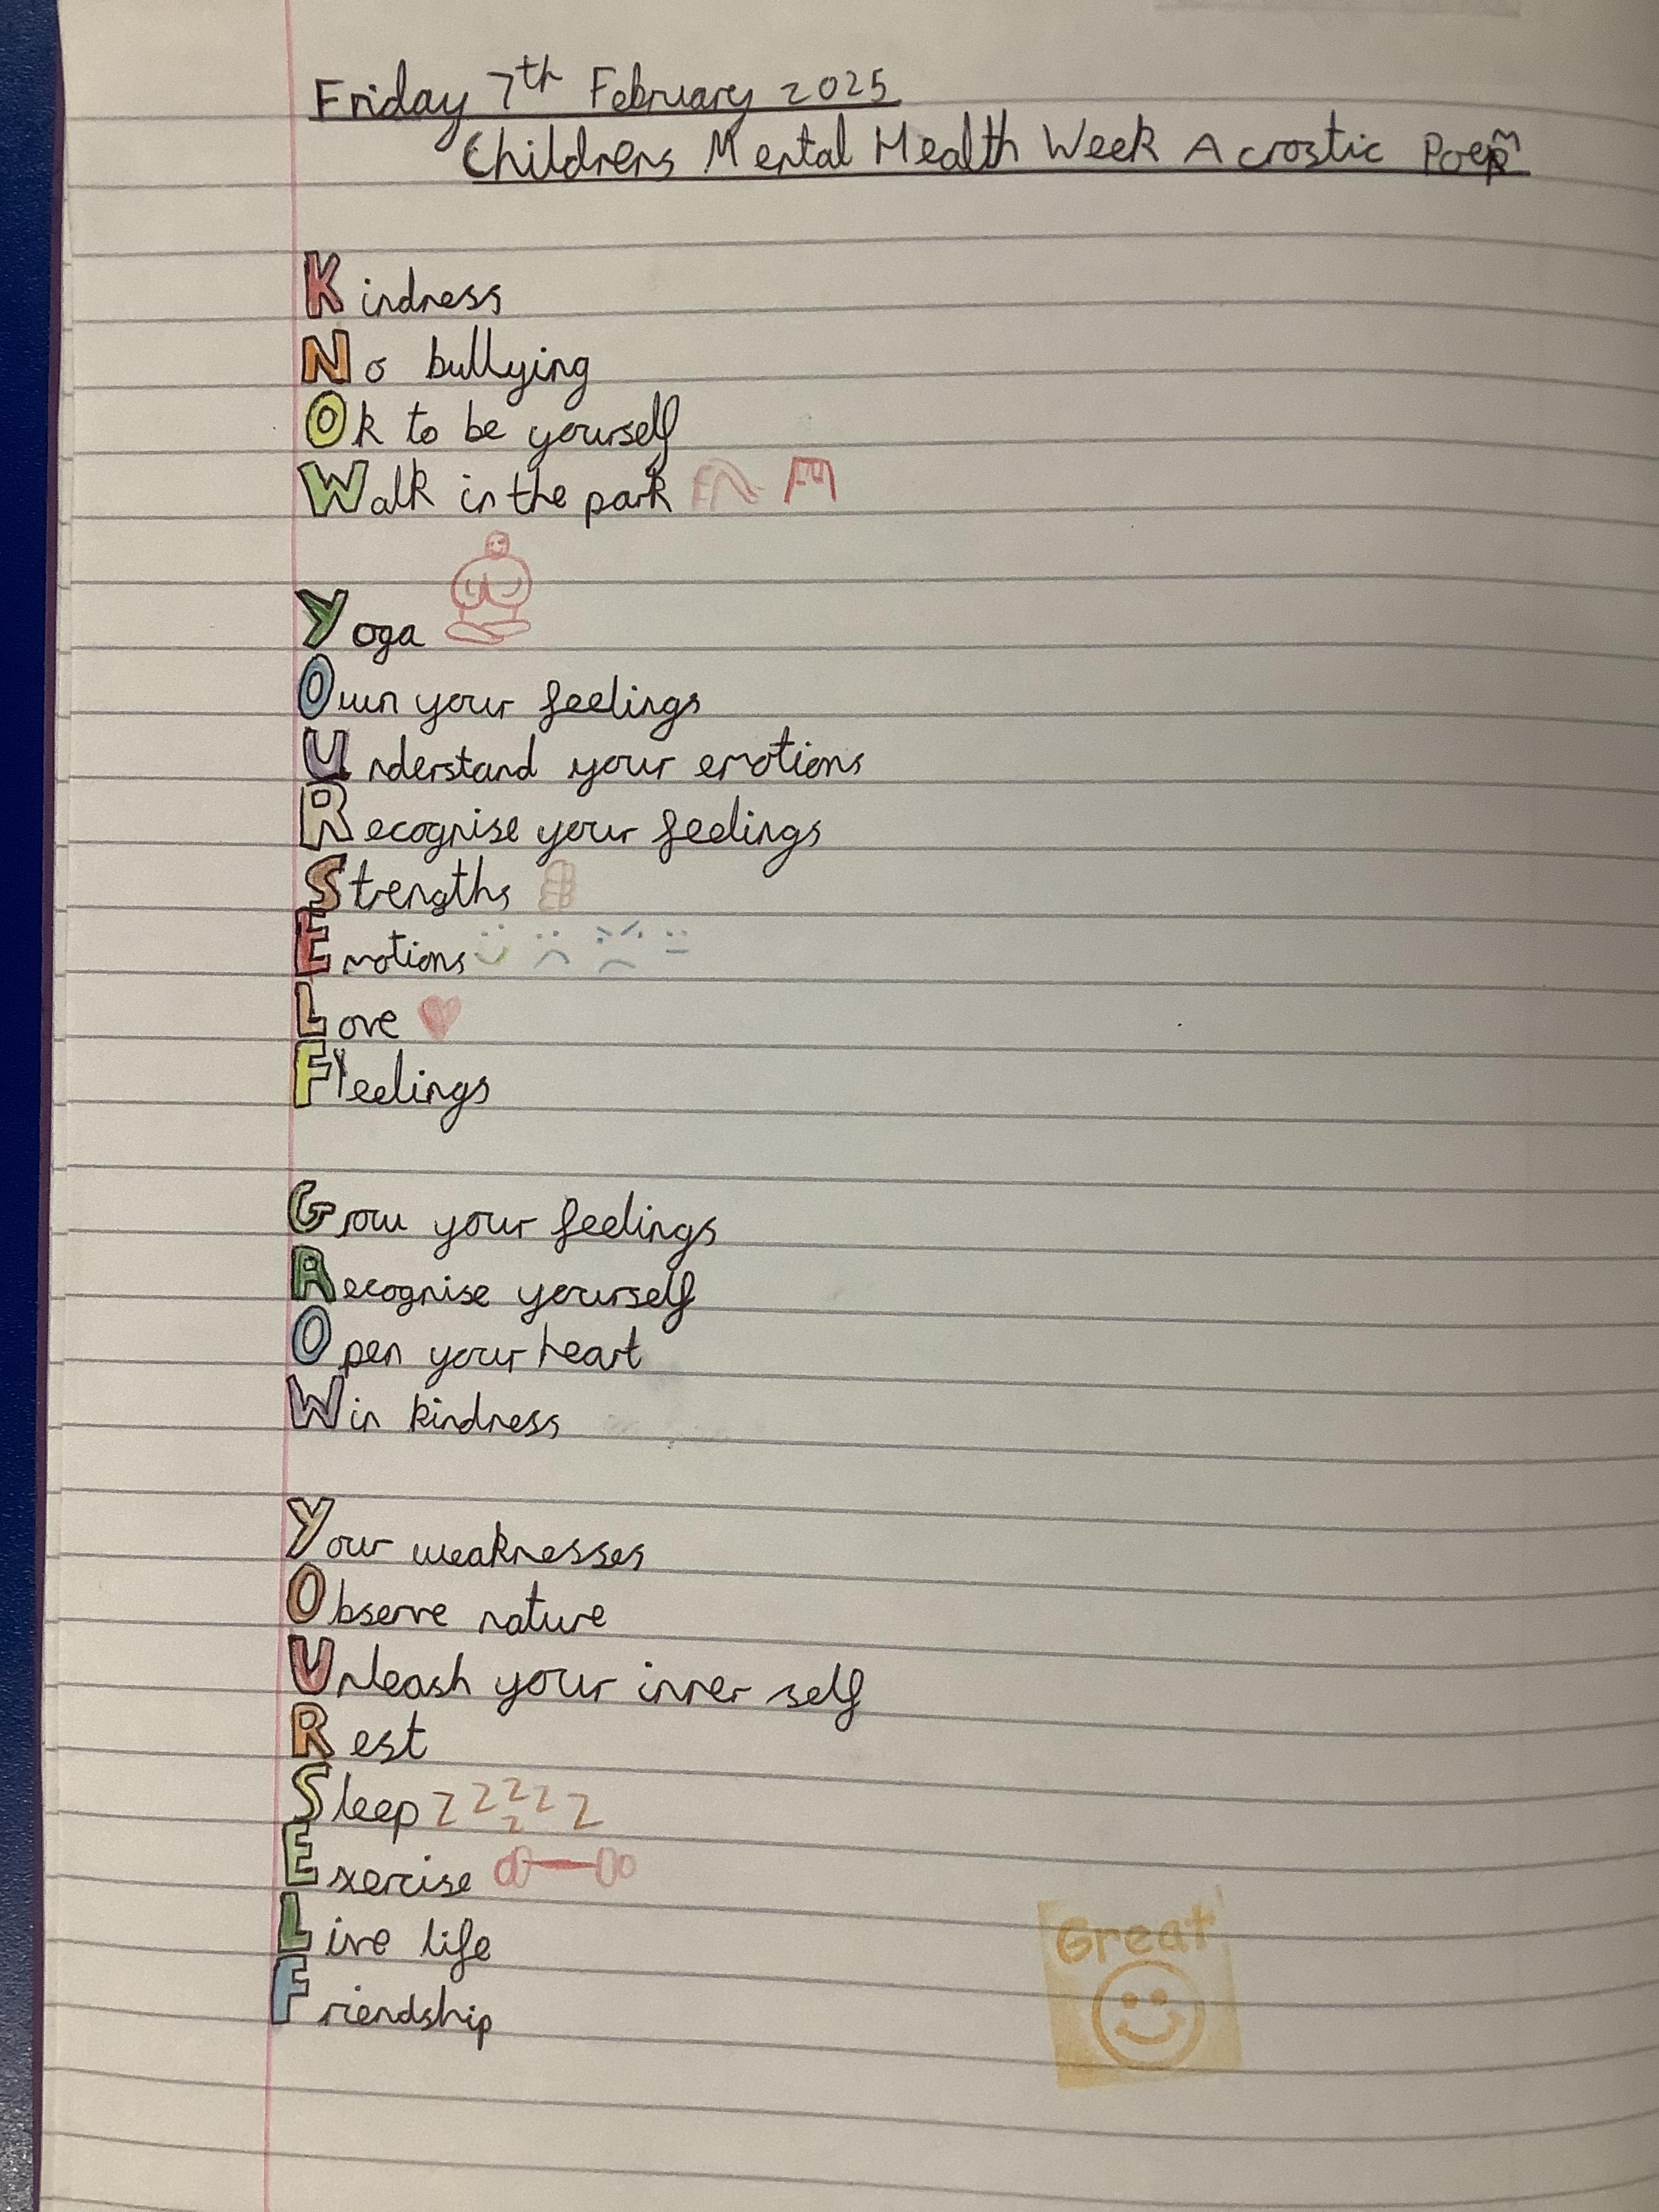 Friday 7th February 2025
Childrens Mental Health Week Acrostic Poem
Kindness
No bullying
Ok to be yourself
Walk in the park
Yoga
Own your feelings
Understand your emotions
Recognise your feelings
Strengths
Emotions
Love
Feelings
Grow your feelings
Recognise yourself
Open your heart
Win kindness
Your weaknesses
Observe nature
Unleash your inner self
Rest
Sleep z z z z z z
Exercise
Live life
Friendship
Great